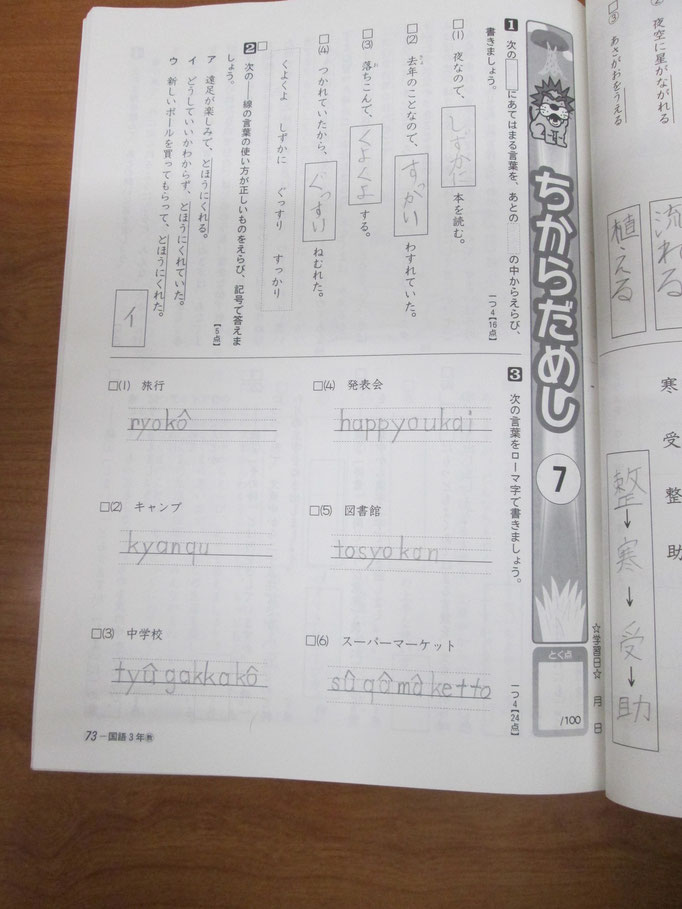 ② 夜空に星がながれる
流れる
③ あさがおをうえる
植える
寒
受
整
助
整→寒→受→助
ちからだめし 7
☆学習日☆ 月 日
とく点
/100
1 次の□にあてはまる言葉を、あとの の中からえらび、
書きましょう。
一つ4【16点】
(1) 夜なので、しずかに本を読む。
(2) 去年のことなので、すっかいわすれていた。
(3) 落ちこんで、くよくよする。
(4) つかれていたから、ぐっすいねむれた。
くよくよ しずかに ぐっすり すっかり
2 次の――線の言葉の使い方が正しいものをえらび、記号で答えま
しょう。
【5点】
ア 遠足が楽しみで、とほうにくれる。
イ どうしていいかわからず、とほうにくれていた。
ウ 新しいボールを買ってもらって、とほうにくれた。
イ
3 次の言葉をローマ字で書きましょう。
一つ4【24点】
(1) 旅行
ryokô
(2) キャンプ
kyanqu
(3) 中学校
tyâgakkakô
(4) 発表会
happyoukai
(5) 図書館
tosyokan
(6) スーパーマーケット
sâqâmâketto
73－国語3年